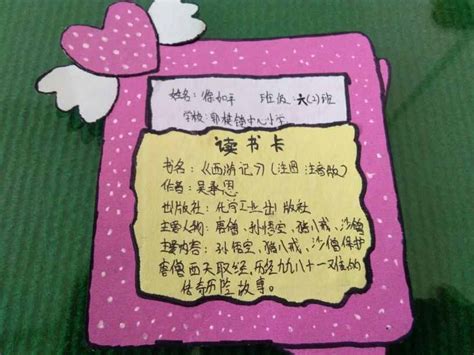 姓名：徐如平 班级：六(2)班
学校：郭楼镇中心小学
读书卡
书名：《西游记》(注图 注音版)
作者：吴承恩
出版社：化学工业出版社
主要人物：唐僧、孙悟空、猪八戒、沙僧
主要内容：孙悟空、猪八戒、沙僧保护
唐僧西天取经，历经九九八十一难的
传奇历险故事。